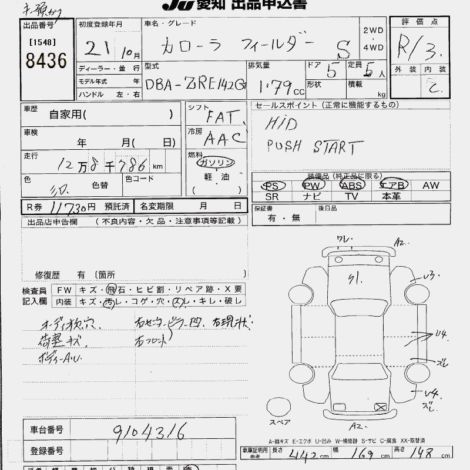 JU 愛知 出品申込書
出品番号 初度登録年月 車名・グレード 評価点
[1548] 8436
21年10月 カローラ フィールダー S 2WD 4WD R/3.
ディーラー・並行
モデル年式
ハンドル 左・右
型式 排気量 ドア 定員 外装 内装
DBA-ZRE142G 1.79cc 5 形状 5人 積載 kg C
車歴 シフト セールスポイント(正常に機能するもの)
自家用( ) FAT
車検 冷房 HID
年 月( 日) AAC PUSH START
走行 燃料
12万8千786km ガソリン
色 色替 色コード 軽油
装備品(純正品に限る)
PS PW ABS エアB AW
SR ナビ TV 本革
R券 11730円 預託済 名変期限 月 日
保証書 後日品
有・無
出品店申告欄 (不良内容・欠品・注意事項等記載)
修復歴 有 〔箇所 〕
検査員記入欄
FW キズ・飛石・ヒビ割・リペア跡・X要
内装 キズ・汚レ・コゲ・穴・スレ・キレ・破レ
オーディオ横穴
荷室キズ
ボディーA.U
右フロント
ワレ A2
U3
U4
ズレ
U4
ズレ
A2
スペア
A-線キズ E-エクボ U-凹み W-補修跡 S-サビ C-腐食 XX-取替済
車台番号 9104316
登録番号
車庫証明用参考 長さ 442cm 幅 169cm 高さ 148cm